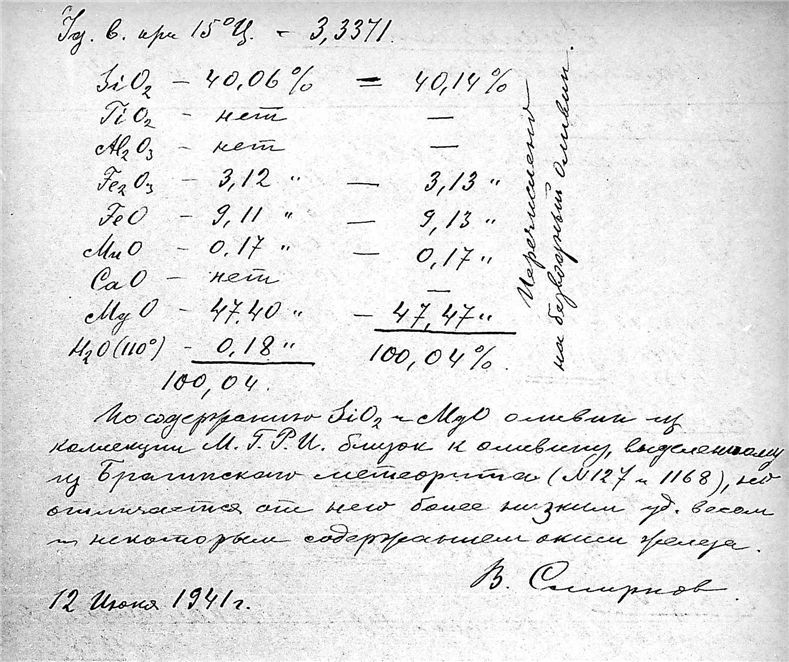 Уд. в. при 15°Ц. = 3,3371.
SiO2 – 40,06% = 40,14%
TiO2 – нет —
Al2O3 – нет —
Fe2O3 – 3,12 " — 3,13 "
FeO – 9,11 " — 9,13 "
MnO – 0,17 " — 0,17 "
CaO – нет —
MgO – 47.40 " — 47,47 "
H2O (110°) – 0,18 " 100,04%.
100,04.
Перечислено
на безводный оливин.
По содержанию SiO2 и MgO оливин из
коллекции М.Г.Р.И. близок к оливину, выделенному
из Брагинского метеорита (N127 и 1168), но
отличается от него более низким уд. весом
и некоторым содержанием окиси железа.
В. Смирнов
12 Июня 1941 г.